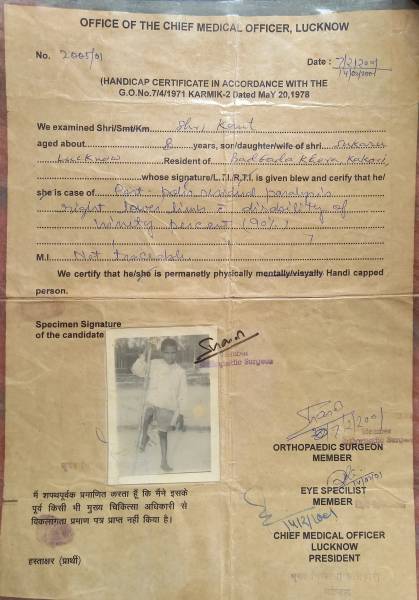 OFFICE OF THE CHIEF MEDICAL OFFICER, LUCKNOW
No. 2005/01 Date : 7/2/2001
14/02/2001
(HANDICAP CERTIFICATE IN ACCORDANCE WITH THE
G.O.No.7/4/1971 KARMIK-2 Dated MaY 20,1978
We examined Shri/Smt/Km Shri
aged about 8 years, sor/daughter/wife of shri
Lucknow Resident of Kakori,
whose signature/L.T.I/R.T.I. is given blew and cerify that he/
she is case of Post-polio residual paralysis
right lower limb disability of
ninety percent (90%)
M.I Not traceable
We certify that he/she is permanetly physically mentally/visyally Handi capped
person.
Specimen Signature
of the candidate
Member
Orthopaedic Surgeon
7/2/2001
Member
Orthopaedic Surgeon
ORTHOPAEDIC SURGEON
MEMBER
EYE SPECILIST
MEMBER
14/2/2001
CHIEF MEDICAL OFFICER
LUCKNOW
PRESIDENT
मैं शपथपूर्वक प्रमाणित करता हूँ कि मैंने इसके
पूर्व किसी भी मुख्य चिकित्सा अधिकारी से
विकलांगता प्रमाण पत्र प्राप्त नहीं किया है।
हस्ताक्षर (प्रार्थी)